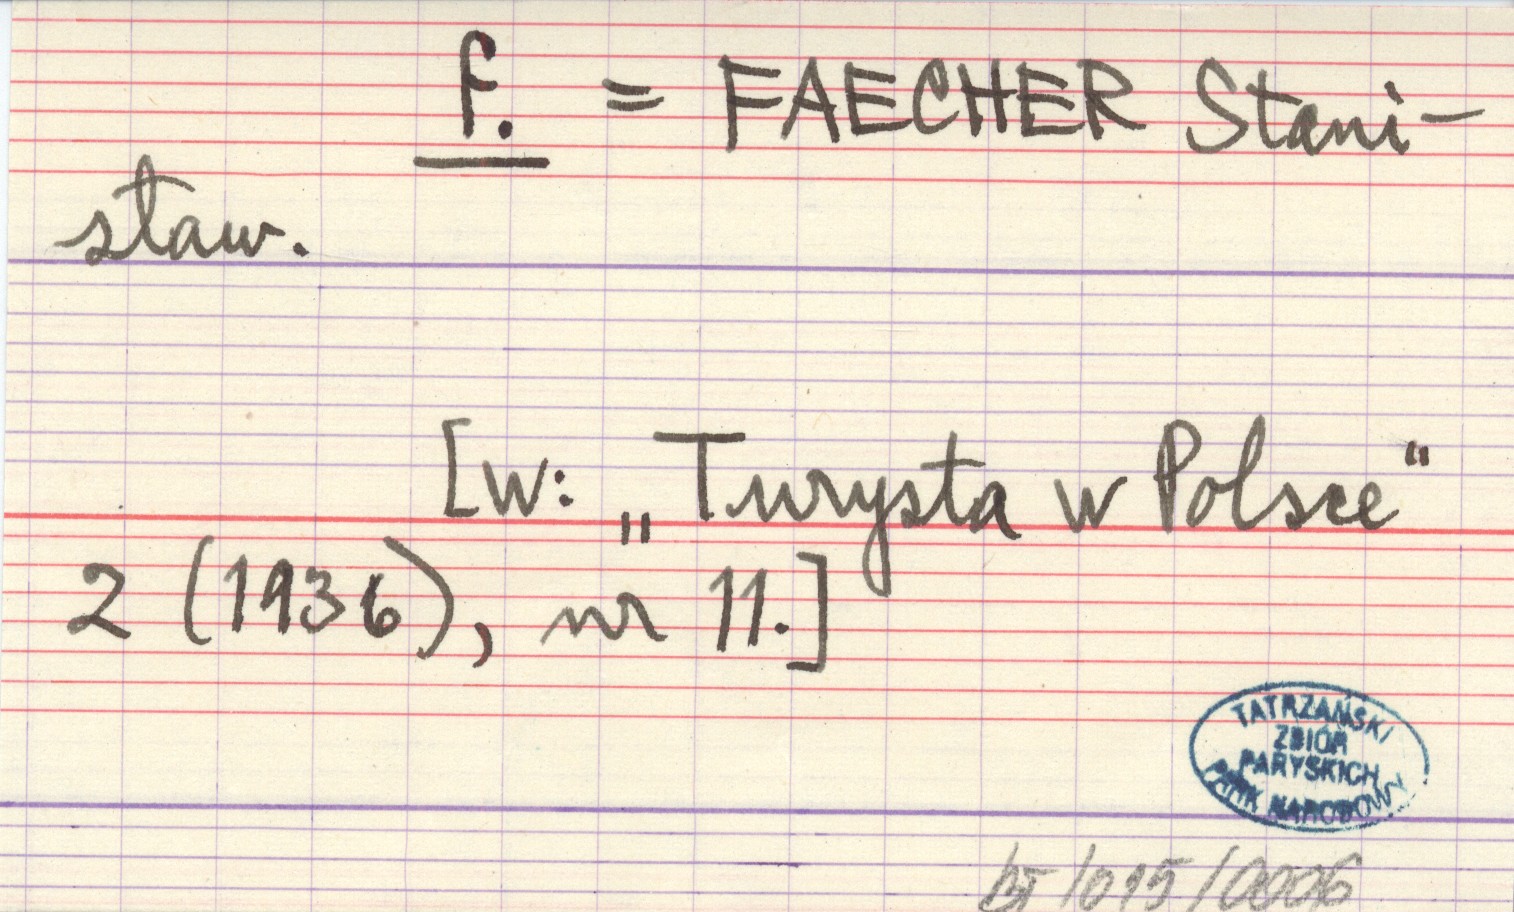 f. = FAECHER Stani-
sław.
[w: „Turysta w Polsce"
2 (1936), nr 11.]
TATRZAŃSKI
ZBIÓR
PARYSKICH
PARK NARODOWY
/015/0006